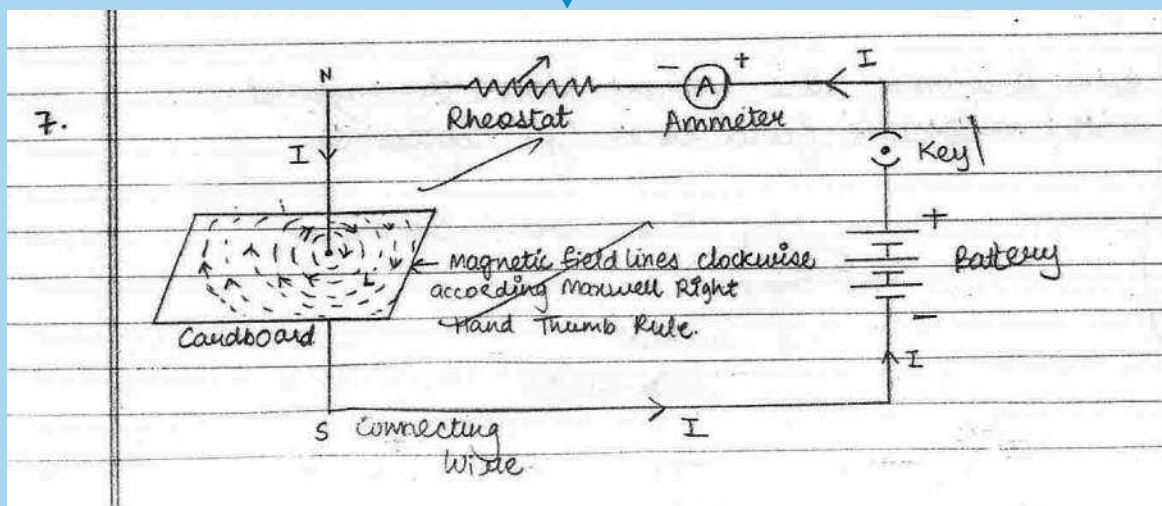 7.
N
- A +
I
Rheostat
Ammeter
I
Key
+
Battery
-
Magnetic field lines clockwise
according Maxwell Right
Hand Thumb Rule.
Cardboard
I
S Connecting
Wire
I